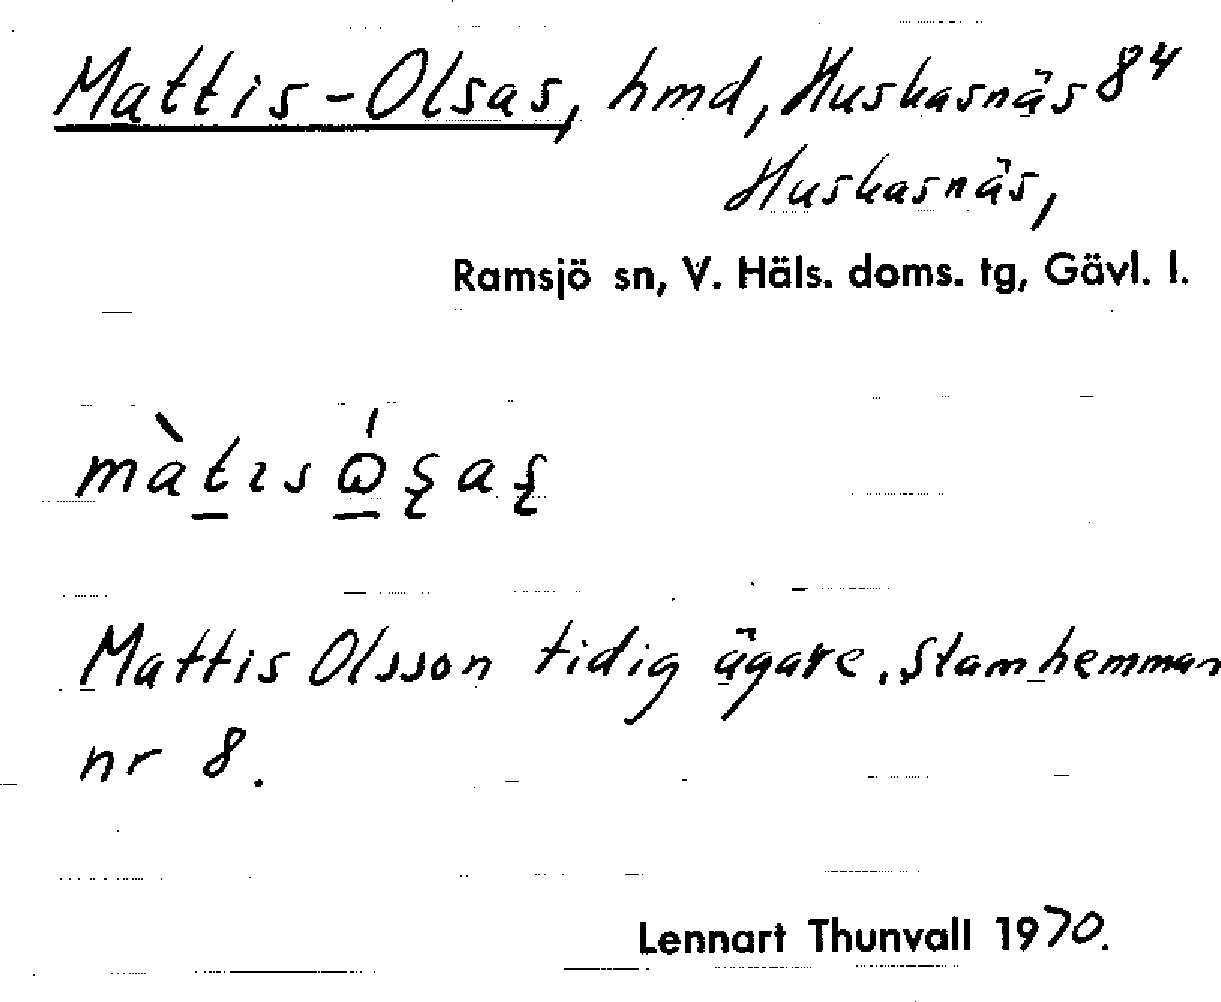 Mattis-Olsas, hmd, Huskasnäs 8⁴
Huskasnäs,
Ramsjö sn, V. Häls. doms. tg, Gävl. l.
Mattis Olsson tidig ägare. Stamhemman
nr 8.
Lennart Thunvall 1970.